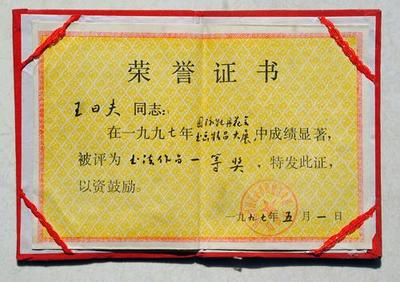 荣誉证书
王日夫 同志:
国际牡丹花会
在一九九七年书画精品大展中成绩显著,
被评为 书法作品一等奖 ,特发此证,
以资鼓励。
一九九七年 五 月 一 日